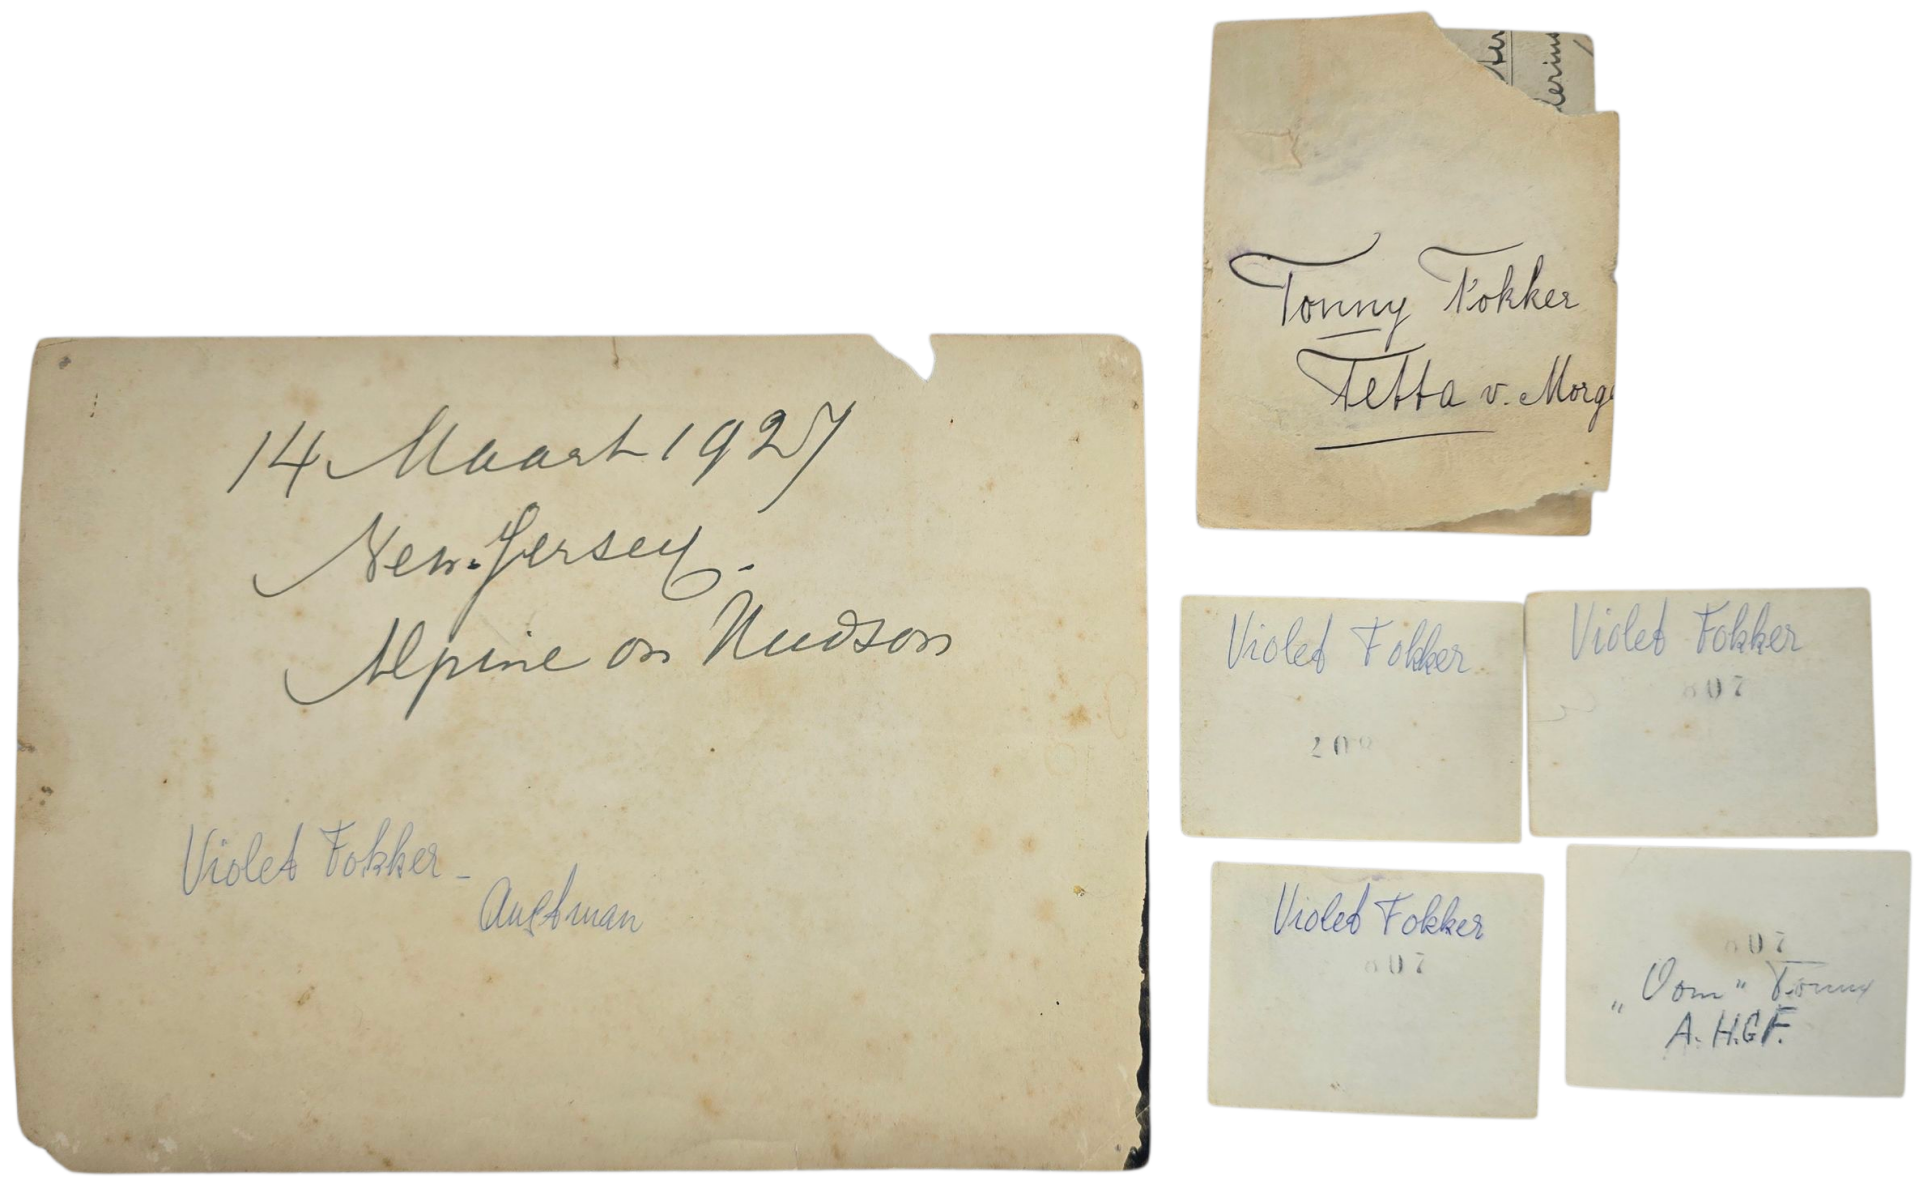 14 Maart 1927
New-Jersey.
Alpine on Hudson
Violet Fokker -
Tonny Fokker
Tetta v. Morg
Violet Fokker
20
Violet Fokker
807
Violet Fokker
807
807
„Oom" Tonny
A. H.G.F.